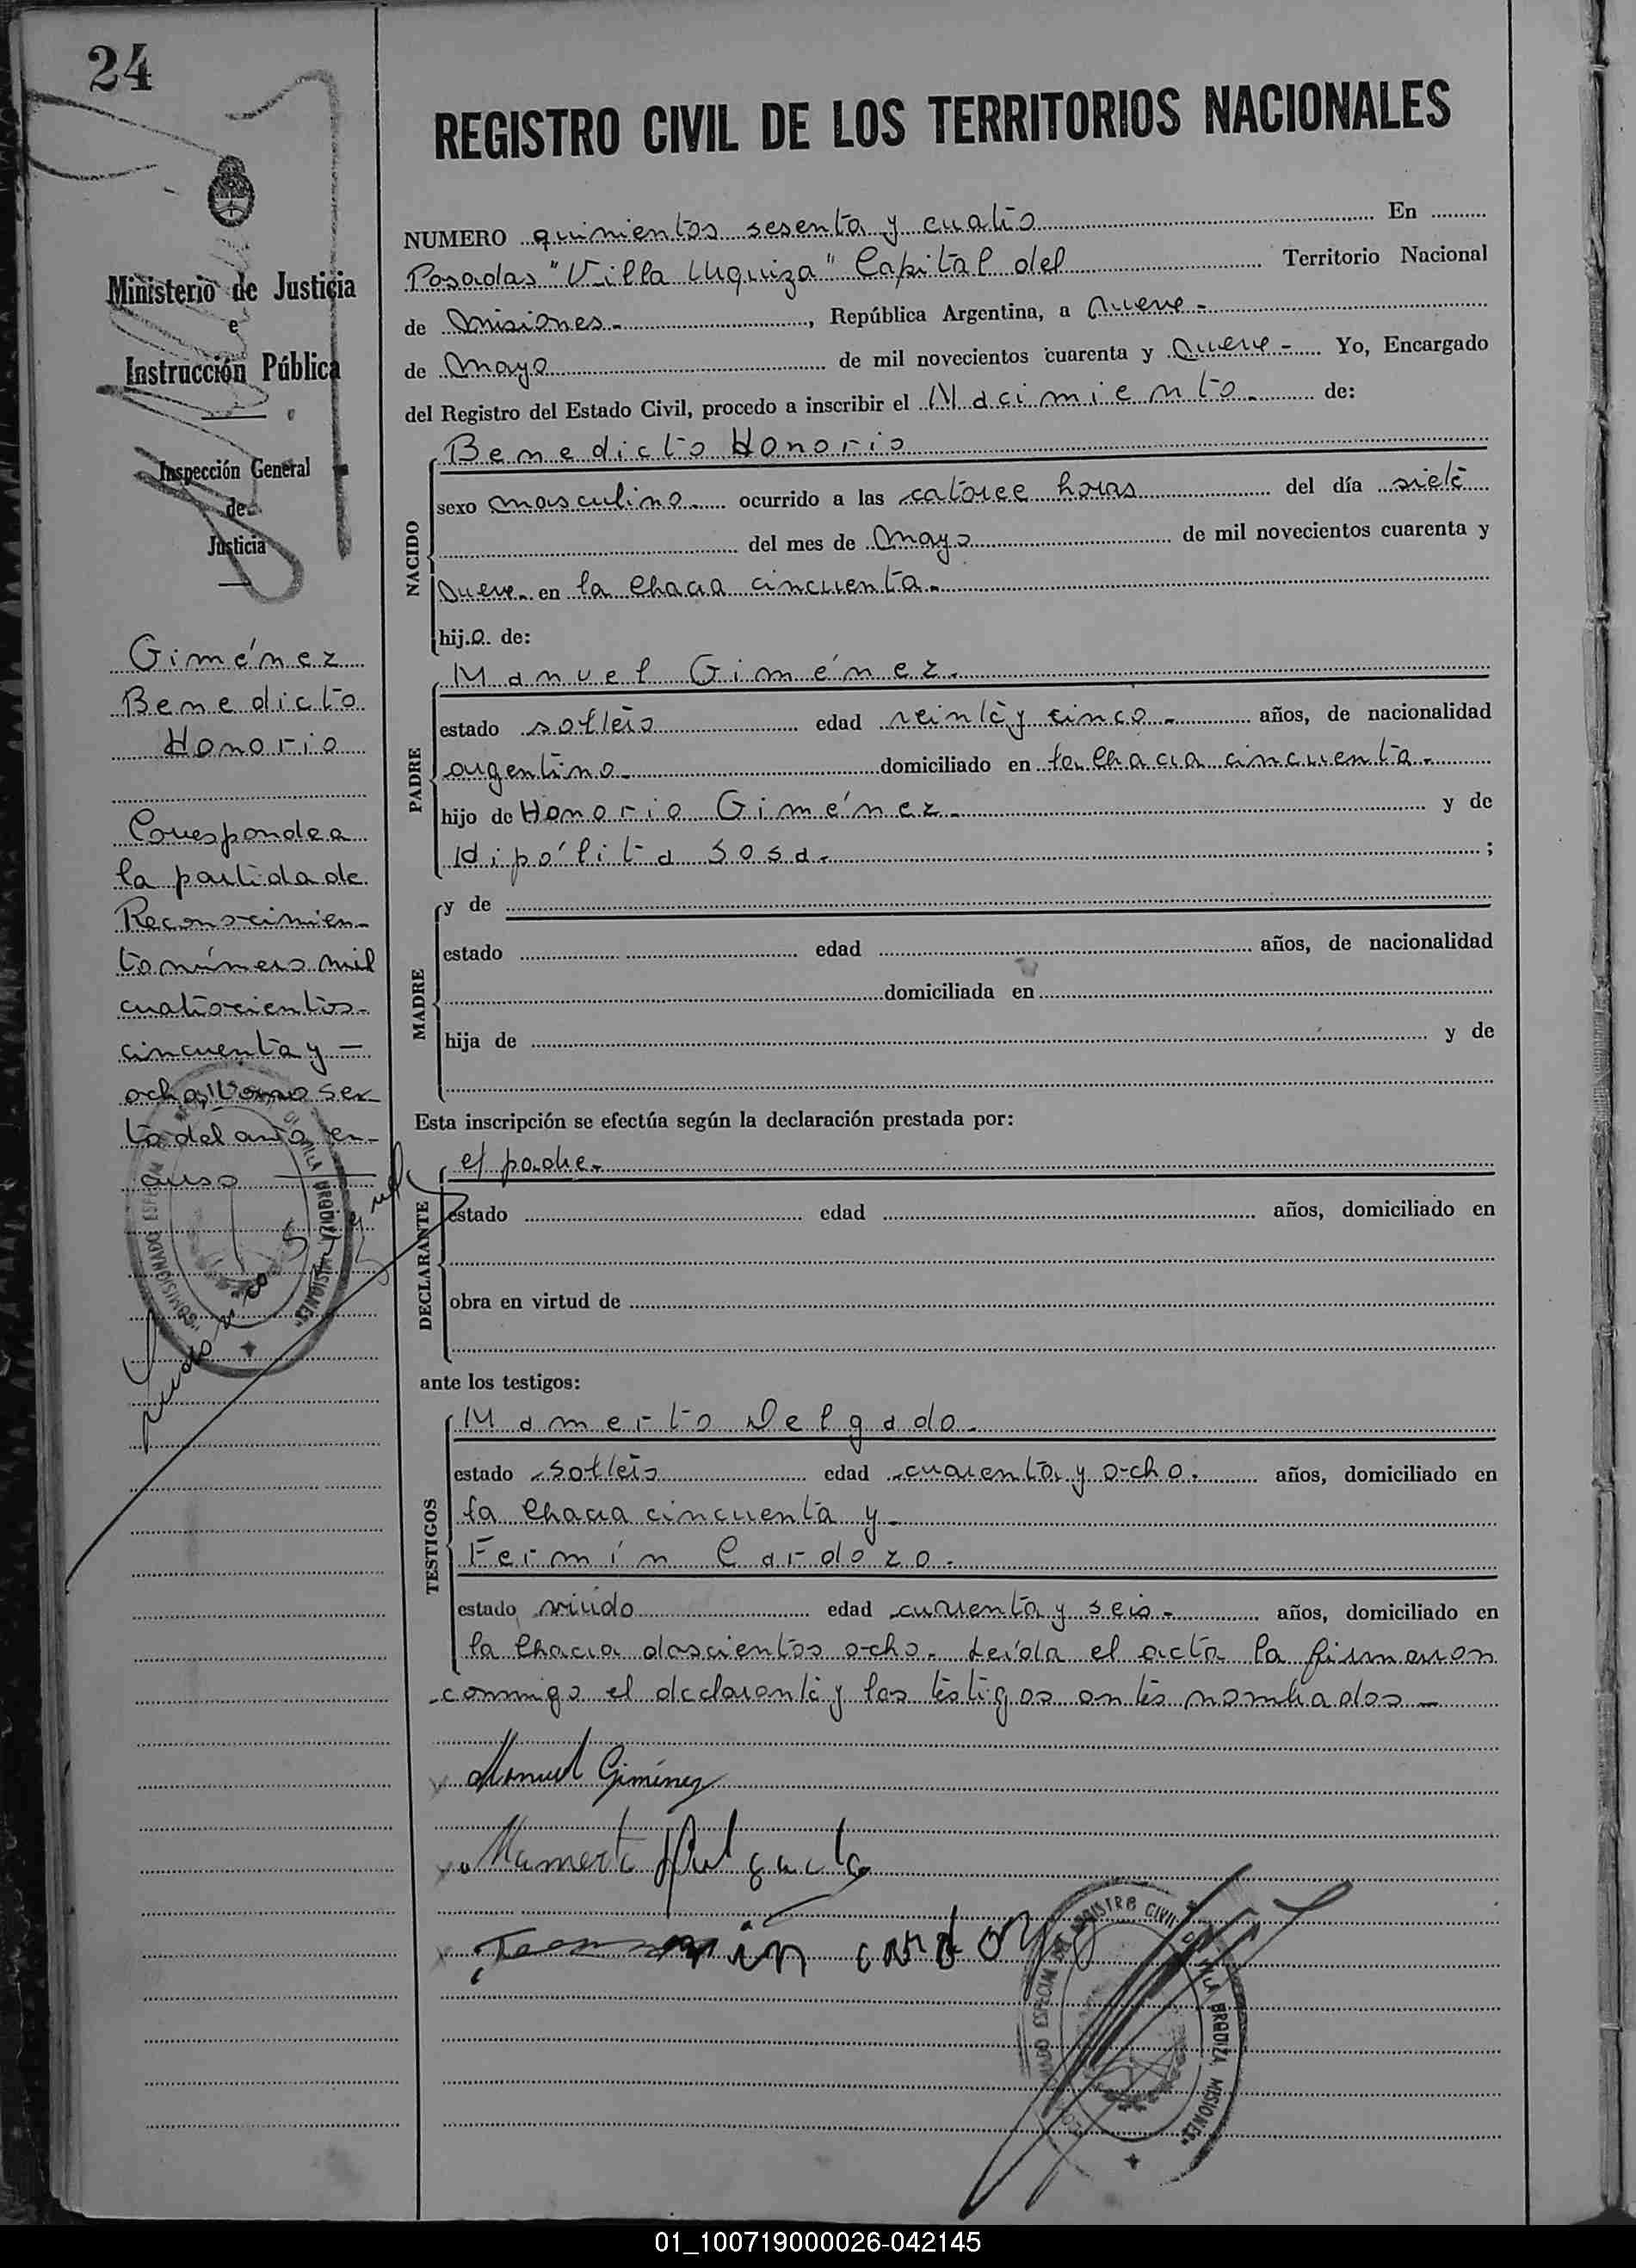 24
Ministerio de Justicia
e
Instrucción Pública
Inspección General
de
Justicia
Giménez
Benedicto
Honorio
Corresponde a
la partida de
Reconocimien-
to número mil
cuatrocientos
cincuenta y —
ocho, tomo sex-
to del año en
curso
REGISTRO CIVIL DE LOS TERRITORIOS NACIONALES
NUMERO quinientos sesenta y cuatro En
Posadas "Villa Urquiza" Capital del Territorio Nacional
de Misiones.-, República Argentina, a nueve.-
de mayo de mil novecientos cuarenta y nueve.- Yo, Encargado
del Registro del Estado Civil, procedo a inscribir el Nacimiento.- de:
Benedicto Honorio
NACIDO
sexo masculino.- ocurrido a las catorce horas del día siete
del mes de mayo de mil novecientos cuarenta y
nueve.- en la chacra cincuenta.-
hijo de:
Manuel Giménez.
PADRE
estado soltero edad veinte y cinco.- años, de nacionalidad
argentino.- domiciliado en la chacra cincuenta.-
hijo de Honorio Giménez.- y de
Hipólita Sosa.- ;
MADRE
y de
estado edad años, de nacionalidad
domiciliada en
hija de y de
Esta inscripción se efectúa según la declaración prestada por:
el padre.-
DECLARANTE
estado edad años, domiciliado en
obra en virtud de
ante los testigos:
Mamerto Delgado.
TESTIGOS
estado soltero edad cuarenta y ocho. años, domiciliado en
la chacra cincuenta y-
Fermín Cardozo.
estado viudo edad cuarenta y seis.- años, domiciliado en
la chacra doscientos ocho.- Leída el acta la firmaron
conmigo el declarante y los testigos antes nombrados —
Manuel Giménez
Mamerto Delgado
Fermin cardozo
01_100719000026-042145